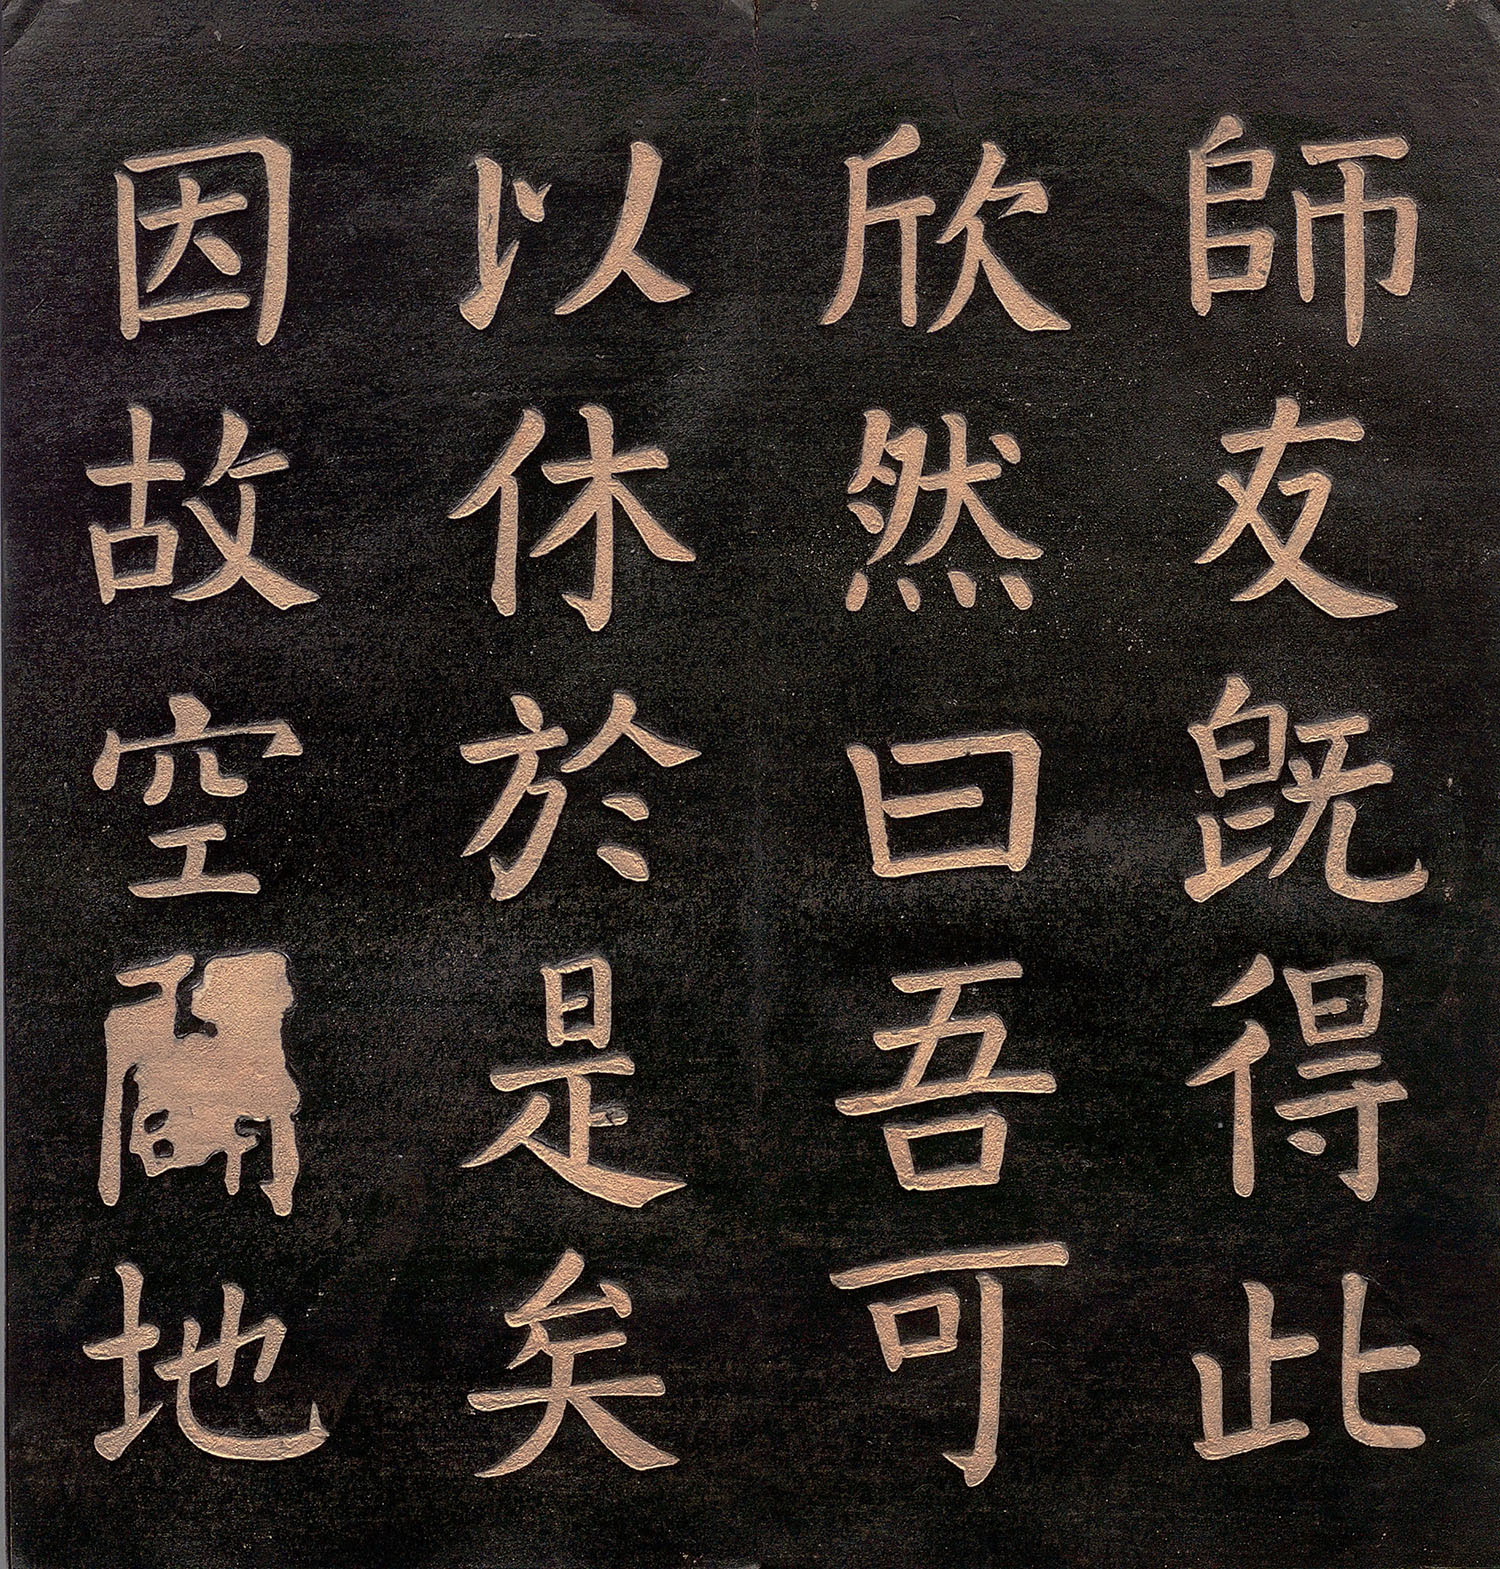 師友既得此
欣然曰吾可
以休於是矣
因故空地